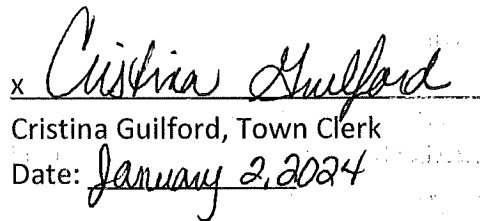 x Cristina Guilford
Cristina Guilford, Town Clerk
Date: January 2, 2024